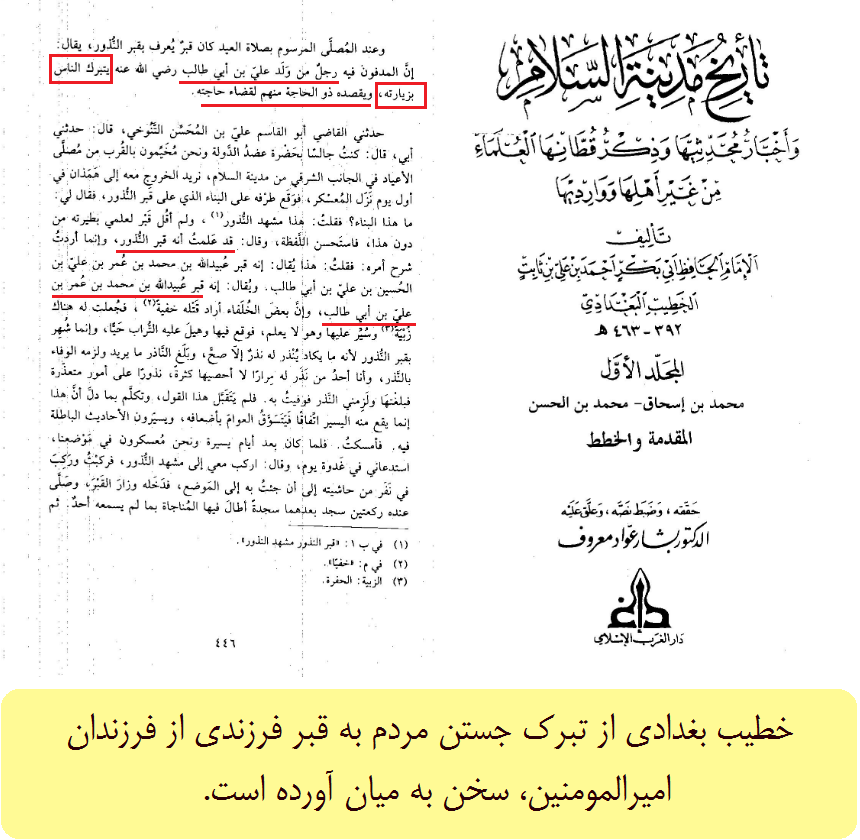 تأريخ مدينة السلام
وأخبار محدثيها وذكر قطانها العلماء
من غير أهلها ووارديها
تأليف
الإمام الحافظ أبي بكر أحمد بن علي بن ثابت
الخطيب البغدادي
٣٩٢ - ٤٦٣ هـ
المجلد الأول
محمد بن إسحاق - محمد بن الحسن
المقدمة والخطط
حققه، وضبط نصه، وعلق عليه
الدكتور بشار عواد معروف
دار الغرب الإسلامي
وعند المُصلَّى المرسوم بصلاة العيد كان قبرٌ يُعرف بقبر النُّذور، يقال:
إنَّ المدفون فيه رجلٌ من وَلَد عليّ بن أبي طالب رضي الله عنه يتبرك الناس
بزيارته، ويقصده ذو الحاجة منهم لقضاء حاجته.
حدثني القاضي أبو القاسم عليّ بن المُحَسِّن التَّنُوخي، قال: حدثني
أبي، قال: كنتُ جالسًا بحَضْرة عضدُ الدَّولة ونحن مُخَيِّمون بالقُرب من مُصلَّى
الأعياد في الجانب الشرقي من مدينة السلام، نريد الخروج معه إلى هَمَذان في
أول يوم نَزَل المُعسكر، فوَقَع طرفُه على البناء الذي على قَبر النُّذور، فقال لي:
ما هذا البناء؟ فقلتُ: هذا مشهد النُّذور(١)، ولم أقُل قَبْر لعلمي بطيرته من
دون هذا، فاستَحسن اللَّفظة، وقال: قد عَلمتُ أنه قبر النُّذور، وإنما أردتُ
شرح أمره: فقلتُ: هذا يُقال: إنه قبر عُبيدالله بن محمد بن عُمر بن علي بن
الحُسين بن علي بن أبي طالب. ويُقال: إنه قبر عُبيدالله بن محمد بن عُمر بن
عليّ بن أبي طالب، وإنَّ بعضَ الخُلَفاء أراد قَتْله خفية(٢)، فجُعلت له هناك
زُبْيَةٌ(٣) وسُيِّر عليها وهو لا يعلم، فوقع فيها وهيل عليه التُّراب حَيًّا، وإنما شُهِر
بقبر النُّذور لأنه ما يكاد يُنْذر له نذرٌ إلّا صحَّ، وبلَّغ النَّاذر ما يريد ولزمه الوفاء
بالنَّذر، وأنا أحدُ من نَذَر له مِرارًا لا أحصيها كثرة، نذورًا على أمور متعذِّرة
فبلغتُها ولَزِمني النَّذر فوفيتُ به. فلم يتَقَبَّل هذا القول، وتكلَّم بما دلَّ أنَّ هذا
إنما يقع منه اليسير اتِّفاقًا فيَتَسَوَّقُ العوامّ بأضعافه، ويسيّرون الأحاديث الباطلة
فيه. فأمسكتُ. فلما كان بعد أيام يسيرة ونحن مُعسكرون في مَوْضعنا،
استدعاني في غَدوة يوم، وقال: اركب معي إلى مشهد النُّذور، فركبْتُ وركِبَ
في نَفَر من حاشيته إلى أن جئتُ به إلى المَوضع، فدَخَله وزارَ القَبْرَ، وصَلَّى
عنده ركعتين سجد بعدهما سجدةً أطالَ فيها المُناجاة بما لم يسمعه أحدٌ. ثم
(١) في ب ١: «قبر النذور مشهد النذور».
(٢) في م: «خفيًا».
(٣) الزبية: الحفرة.
٤٤٦
خطیب بغدادی از تبرک جستن مردم به قبر فرزندی از فرزندان
امیرالمومنین، سخن به میان آورده است.